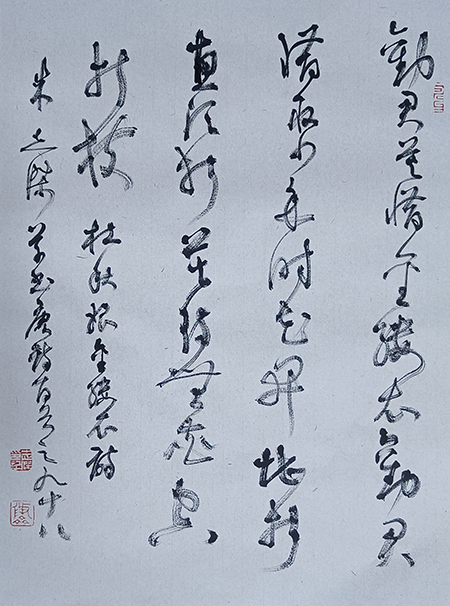 勸君莫惜金縷衣勸君
惜取少年時花開堪折
直須折莫待無花空
折枝 杜秋娘金縷衣詩
朱 草書唐詩百首之九十八